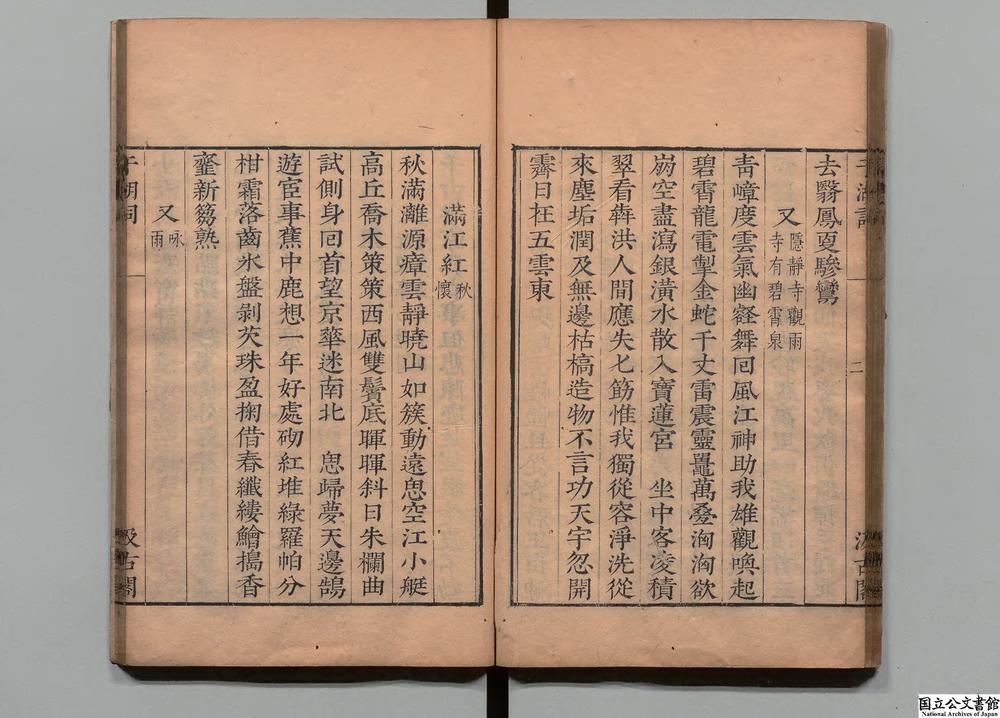 于湖詞
一
二
汲古閣
去翳鳳更驂鸞
又 隱靜寺觀雨
寺有碧霄泉
靑嶂度雲氣幽壑舞回風江神助我雄觀喚起
碧霄龍電掣金蛇千丈雷震靈鼉萬疊洶洶欲
崩空盡瀉銀潢水散入寶蓮宮 坐中客凌積
翠看犇洪人間應失匕筯惟我獨從容淨洗從
來塵垢潤及無邊枯槁造物不言功天宇忽開
霽日在五雲東
滿江紅 秋
懷
秋滿灕源瘴雲靜曉山如簇動遠思空江小艇
高丘喬木策策西風雙鬢底暉暉斜日朱欄曲
試側身回首望京華迷南北 思歸夢天邊鵠
遊宦事蕉中鹿想一年好處砌紅堆綠羅帕分
柑霜落齒氷盤剝芡珠盈掬借春纖縷鱠搗香
虀新篘熟
又 咏
雨
于湖詞
一
汲古閣
国立公文書館
National Archives of Japan